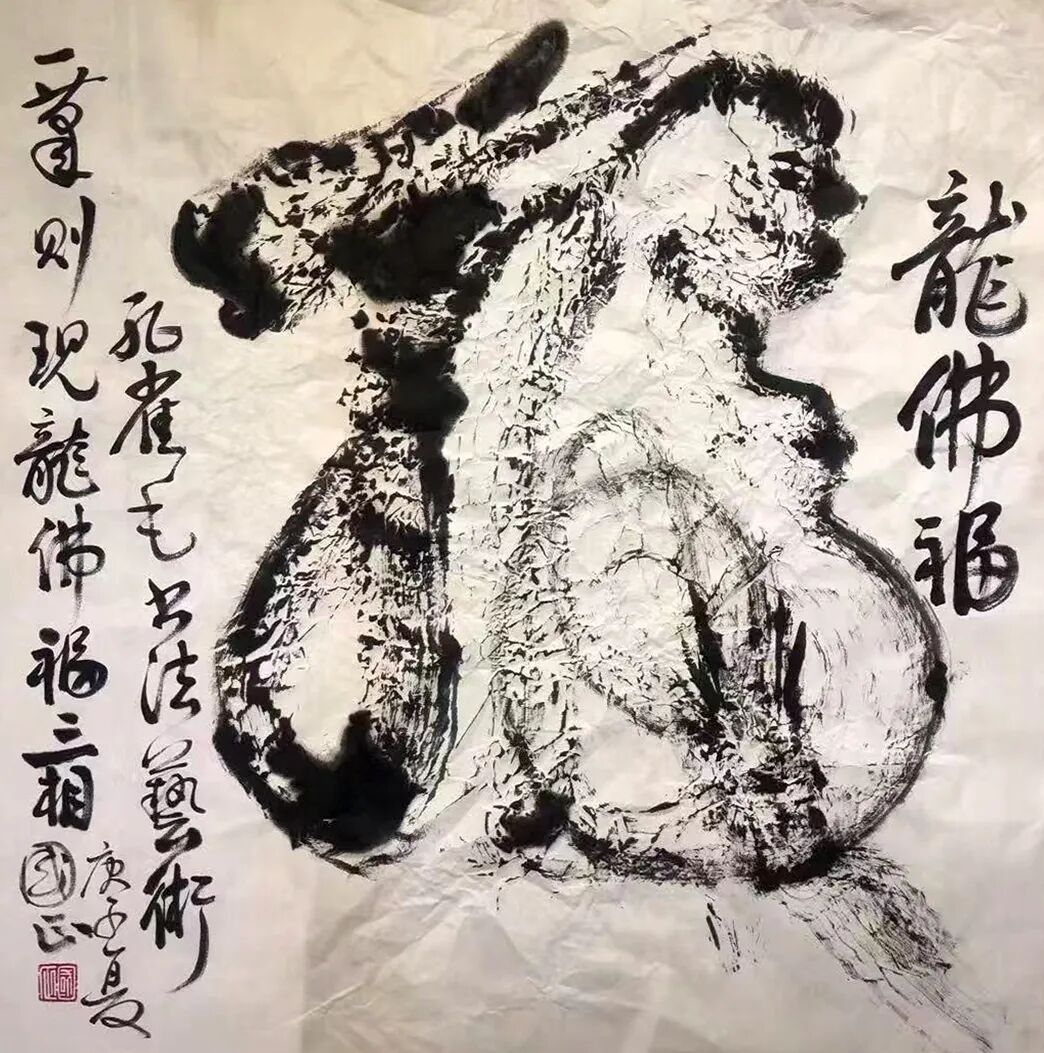 龍佛福
福
孔雀毛书法藝術
庚子夏
一筆则现龍佛福三相
國正